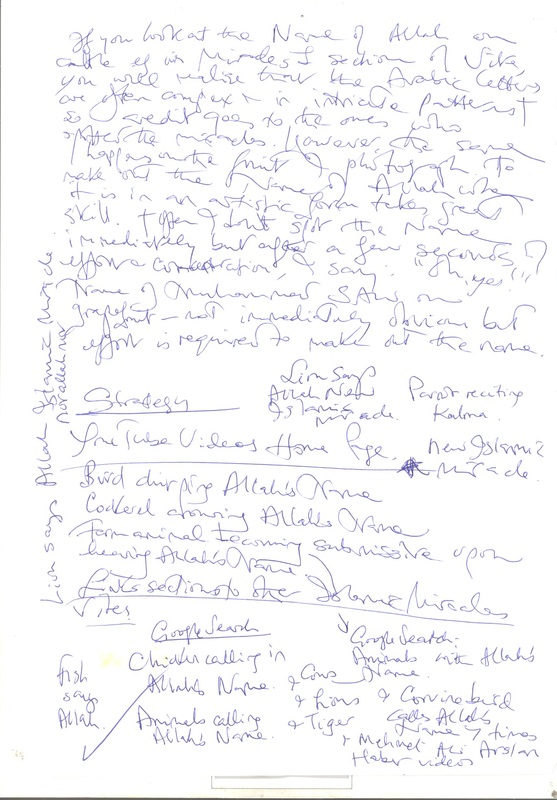 If you look at the Name of Allah on
cattle etc in Miracles I section of Site,
you will realise that the Arabic letters
are often complex & in intricate patterns &
so credit goes to the ones who
spotted the miracles. However, the same
happens on the fruit & photograph. To
make out the Name of Allah when
it is in an artistic form takes great
skill. I often don't spot the Name
immediately but after a few seconds of
effort & concentration I say: "Oh, yes!!"
Name of Muhammad SAW on
grapefruit - not immediately obvious but
effort is required to make out the name.
Strategy
Lion Says
Allah New
Islamic
miracle.
Parrot reciting
Kalma.
YouTube Videos Home Page.
new Islamic
miracle.
Bird chirping Allah's Name
Cockerel crowing Allah's Name
Farm animal becoming submissive upon
hearing Allah's Name
Links section to other Islamic Miracles
Sites
Google Search
Chicken calling in
Allah's Name.
Animals calling
Allah's Name.
Fish
says
Allah.
Google Search:
Animals with Allah's
Name.
& Cows
& Lions
& Tiger
& bird
calls Allah's
Name 7 times
& Mehmet Ali Arslan
Haber videos
Lion says Allah Islamic Miracle